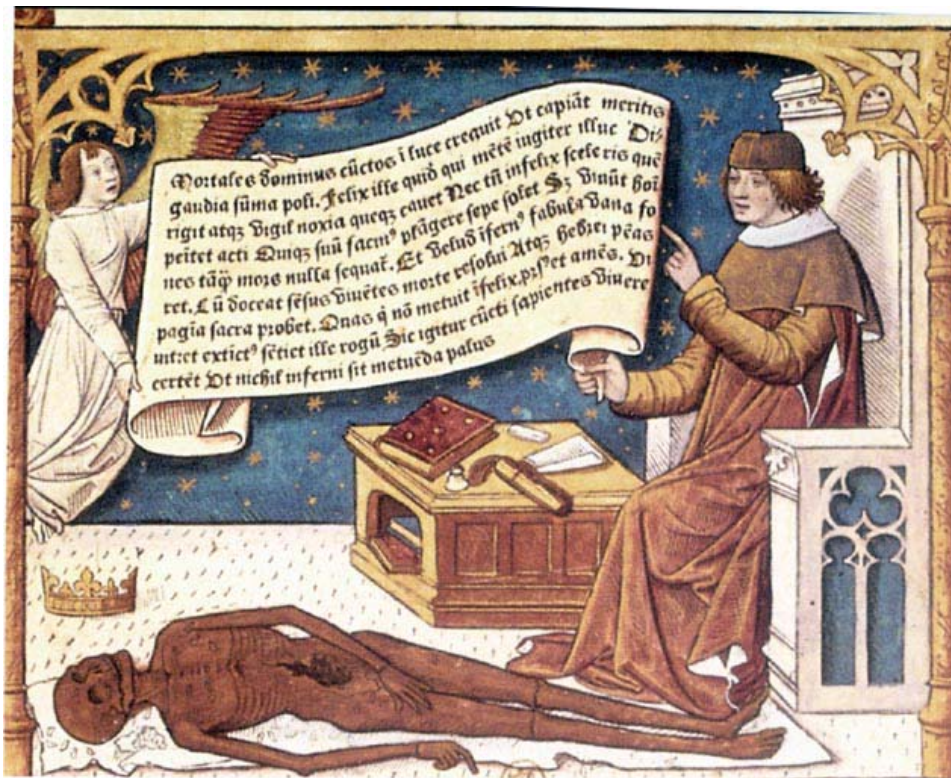 Mortales dominus cūctos ī luce creavit Ut capiāt meritis
gaudia sūma poli. Felix ille quidē qui mētē iugiter illuc Di⸗
rigit atqꝫ vigil noxia queqꝫ cavet Nec tn̄ infelix sceleris quē
peitet acti Quiqꝫ suū facinꝰ plāgere sepe solet Sꝫ vivūt hoī
nes tāqꝫ mors nulla sequat̄. Et velud īfernꝰ fabula vana fo
ret. Cū doceat sēsus vivētes morte resolvi Atqꝫ hebrei pēas
pagīa sacra probet. Quas q̄ nō metuit īfelix, et amēs. Vi
vit: et extīctꝰ sētiet ille rogū Sic igitur cūcti sapientes vivere
certēt Ut nichil inferni sit metuēda palus